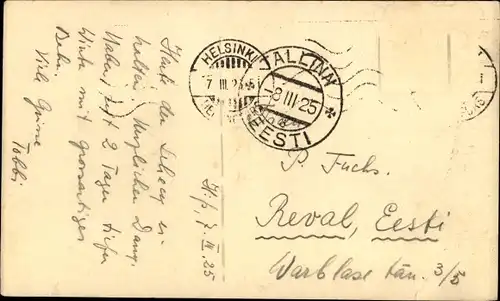 Habe den Scheck er-
halten. Herzlichen Dank.
Haben seit 2 Tagen tiefen
Winter mit grossartiger
Viele Grüsse
Tobbi
H:fs, 7. III. 25
HELSINKI
7 III. 25
TALLINN
8 III 25
EESTI
P. Fuchs.
Reval, Eesti
Warblase tän. 3/5